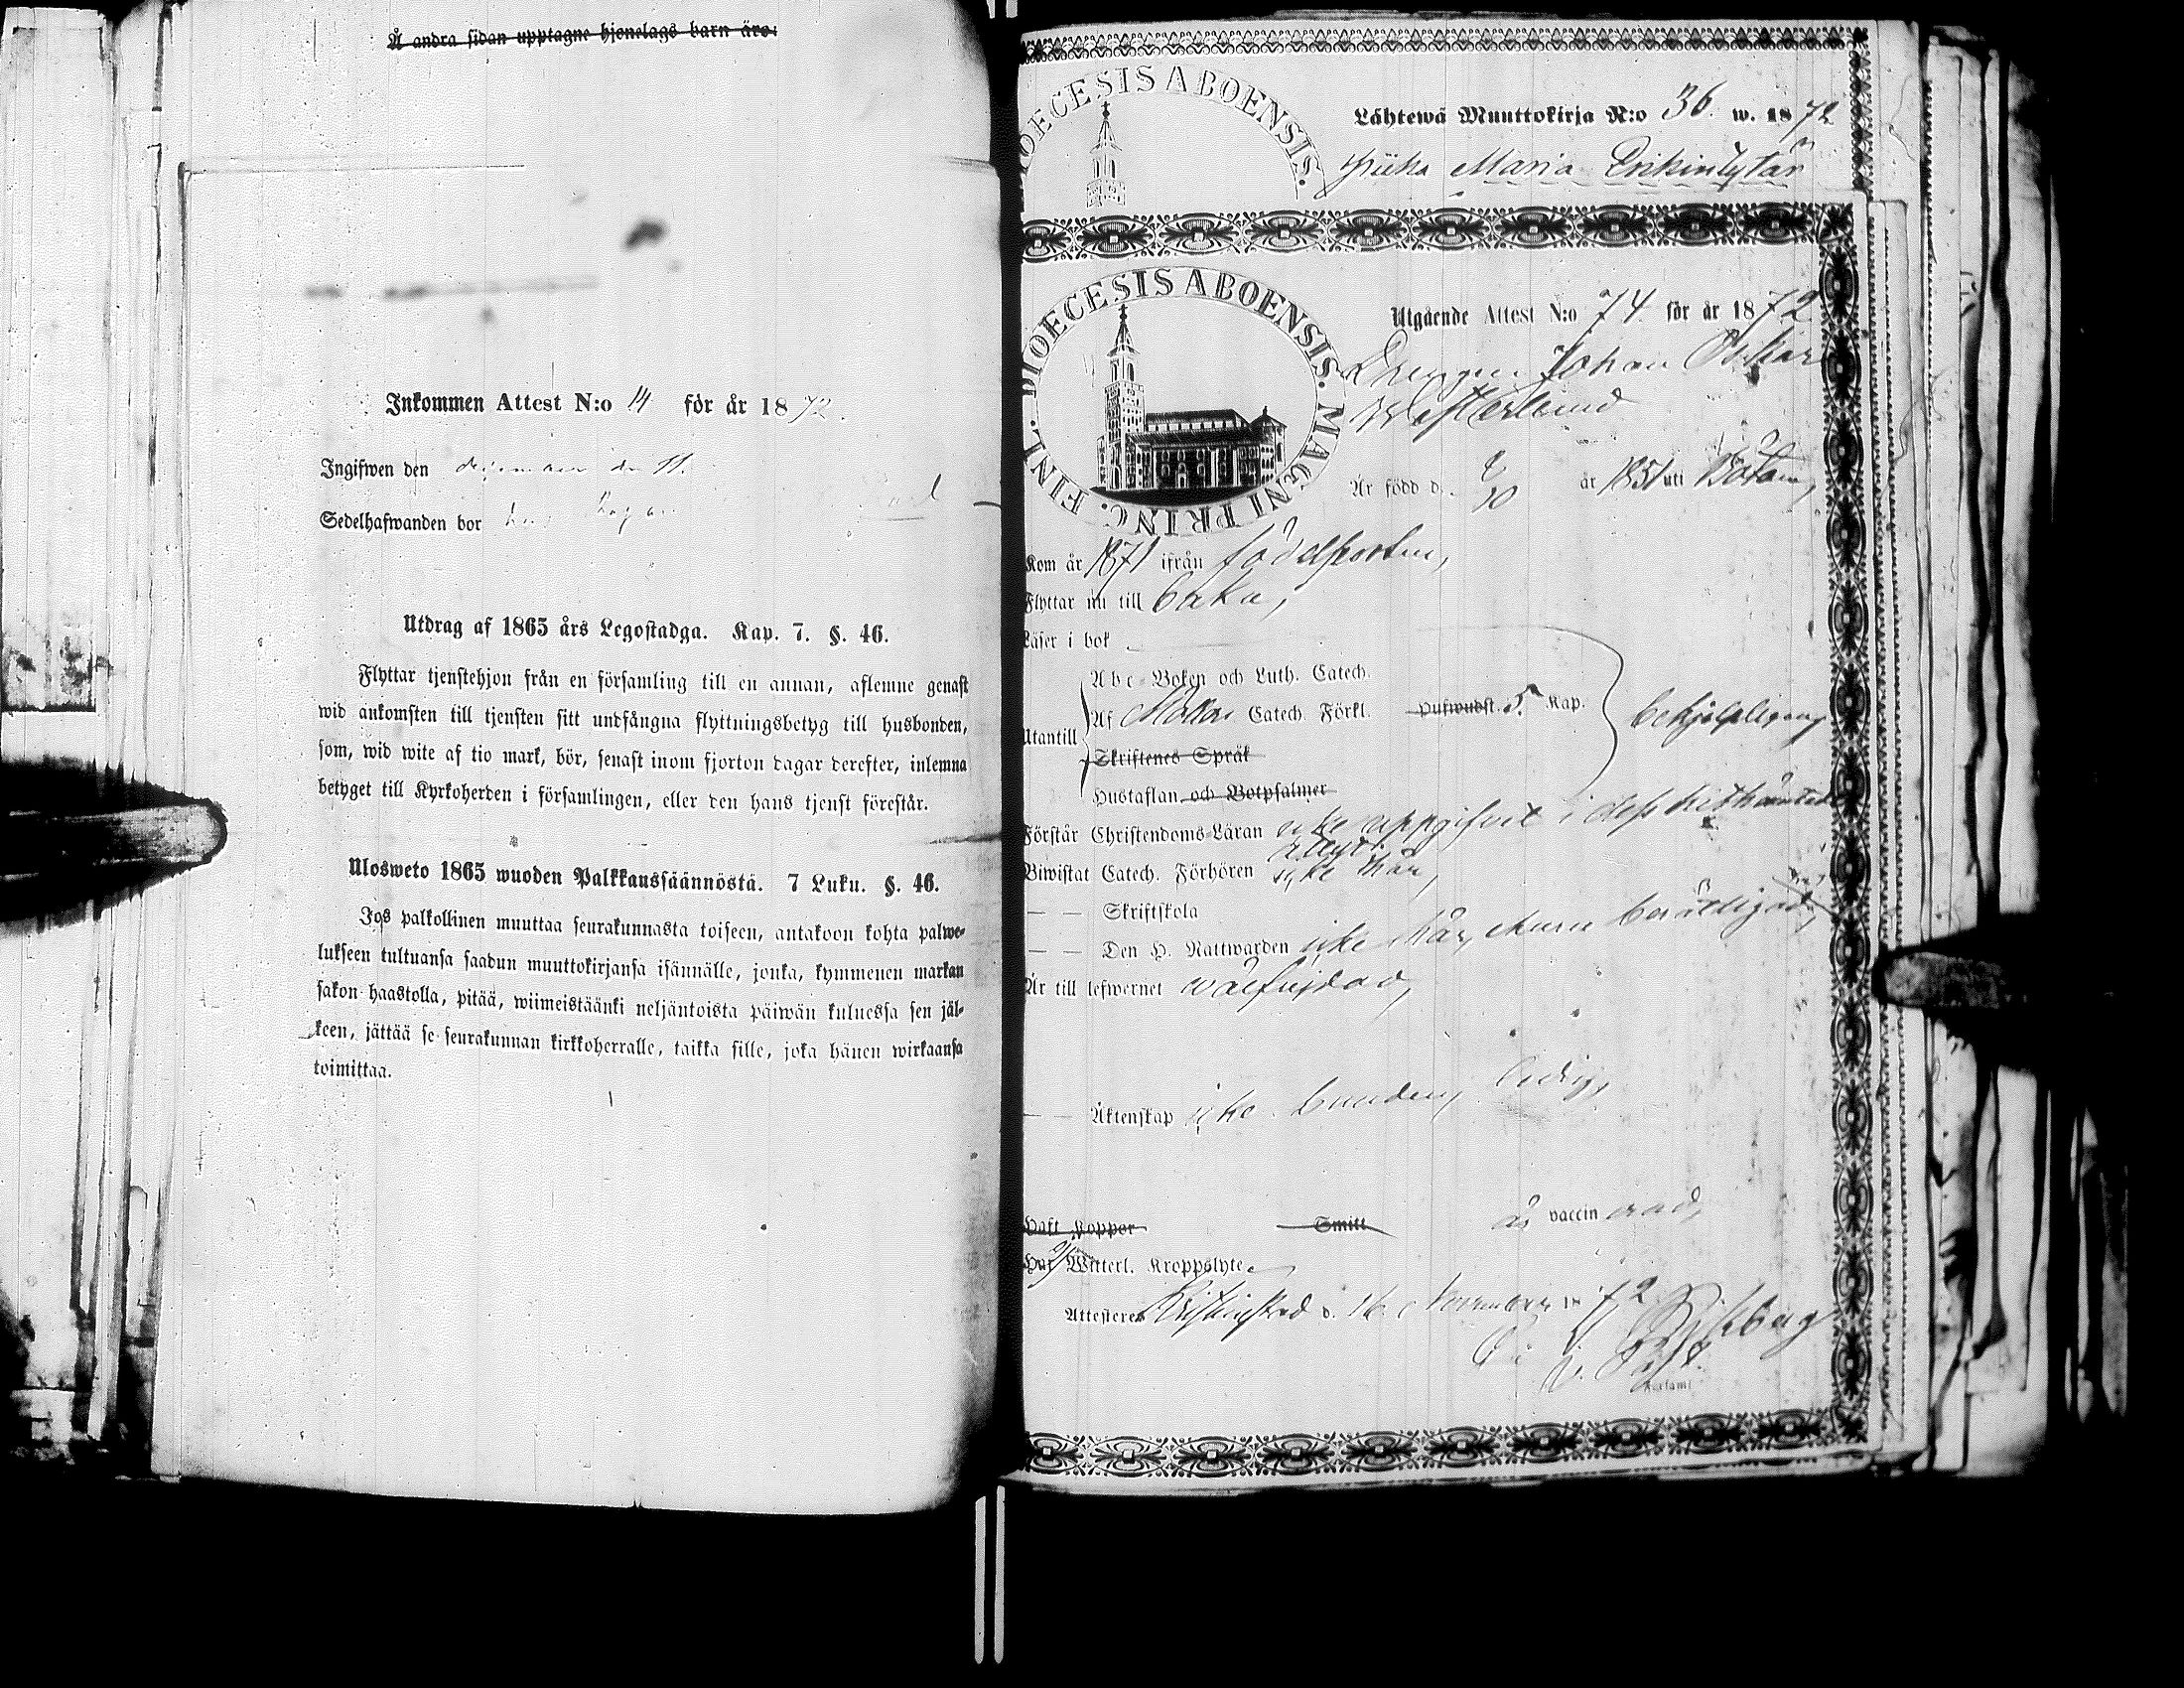 Å andra sidan upptagne hjonelags barn äro:
Inkommen Attest N:o 14 för år 1872.
Ingifwen den
Sedelhafwanden bor
Utdrag af 1865 års Legostadga. Kap. 7. §. 46.
Flyttar tjenstehjon från en församling till en annan, aflemne genast
wid ankomsten till tjensten sitt undfångna flyttningsbetyg till husbonden,
som, wid wite af tio mark, bör, senast inom fjorton dagar derefter, inlemna
betyget till Kyrkoherden i församlingen, eller den hans tjenst förestår.
Ulosweto 1865 wuoden Palkkaussäännöstä. 7 Luku. §. 46.
Jos palkollinen muuttaa seurakunnasta toiseen, antakoon kohta palwe-
lukseen tultuansa saadun muuttokirjansa isännälle, jonka, kymmenen markan
sakon haastolla, pitää, wiimeistäänki neljäntoista päiwän kuluessa sen jäl-
keen, jättää se seurakunnan kirkkoherralle, taikka sille, joka hänen wirkaansa
toimittaa.
DIOECESIS ABOENSIS.
Lähtewä Muuttokirja N:o 36. w. 1872
Piika Maria Erikintytär
DIOECESIS ABOENSIS. MAGNI PRINC. FINL.
Utgående Attest N:o 74 för år 1872
Drengen Johan Oskar
Westerlund
Är född d. 9/10 år 1851 uti Bötom,
Kom år 1871 ifrån födelseorten,
Flyttar nu till baka,
Läser i bok
Abc-Boken och Luth. Catech.
Utantill Af Möllers Catech. Förkl. Hufwudst. 5 Kap. behjelpligen,
Skriftenes Språk
Hustaflan och Botpsalmer
Förstår Christendoms-Läran icke uppgifvet i dess hithämtade
attest.
Biwistat Catech. Förhören icke här,
— — Skriftskola
— — Den H. Nattwarden icke här, men berättigad,
Är till lefwernet wälfrejdad,
— — Äktenskap icke bunden, ledig,
Haft Koppor Smitt är vaccinerad,
Har Witterl. Kroppslyte
Attesteras Kristinestad d. 16. November 1872.